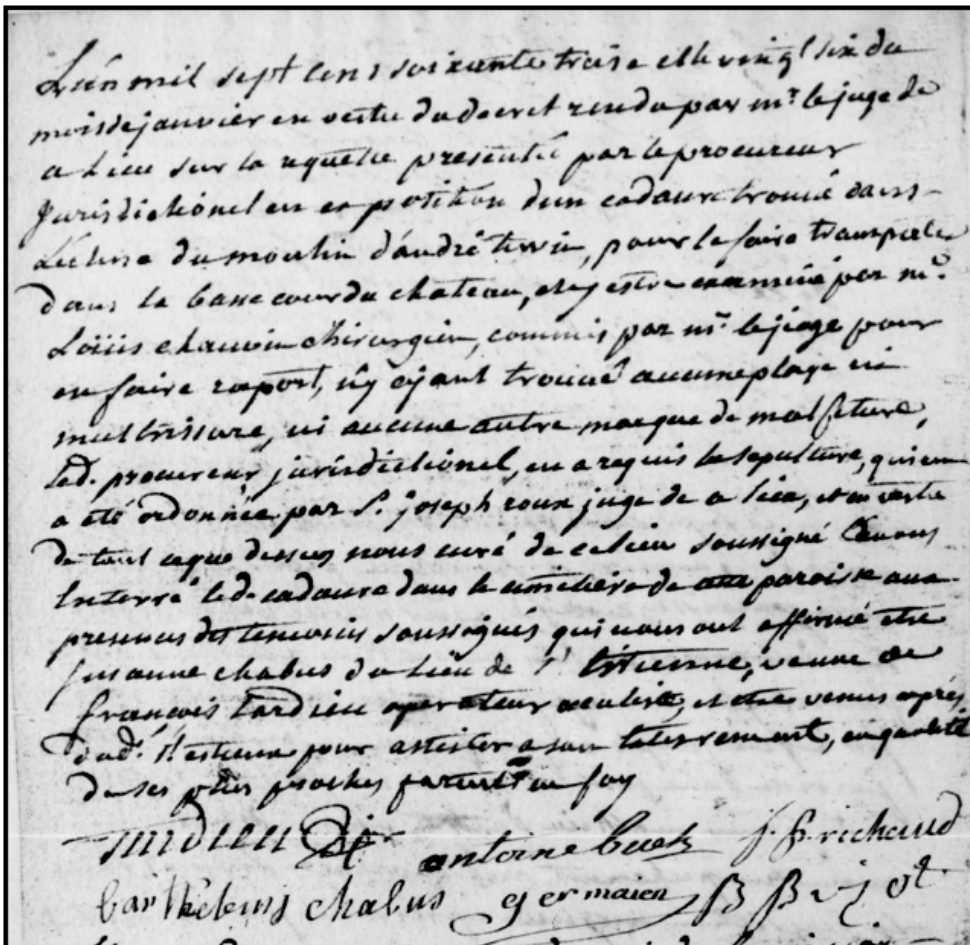 L'an mil sept cens soixante treise et le vingt six du
mois de janvier en vertu du decret rendu par mr. le juge de
ce lieu sur la requette presentée par le procureur
Jurisdictionel en expotition d'un cadavre trouvé dans
L'ecluse du moulin d'andré terrin, pour le faire transporter
dans la basse cour du chateau, et y estre examiné par mr.
Loüis chauvin chirurgien, commis par mr. le juge pour
en faire raport, n'y ayant trouvé aucune playe ni
meurtrissure, ni aucune autre marque de malfeture,
led. procureur jurisdictionel, en a requis la sepulture, qui en
a été ordonnée par Sr. joseph roux juge de ce lieu, et en vertu
de tout ce que dessus nous curé de ce lieu soussigné l'avons
Enterré led. cadavre dans le cimetiere de cette paroisse aux
presences des temoins soussignés qui nous ont affirmé etre
susanne chabus du lieu de St. Estienne, veuve de
françois tardieu operateur oculiste, et etre venus aprés
dud. St. estienne pour assister a son enterrement, en qualité
de ses plus proches parents en foy
tardieu antoine J. P. richaud
barthelemis chabus germain B